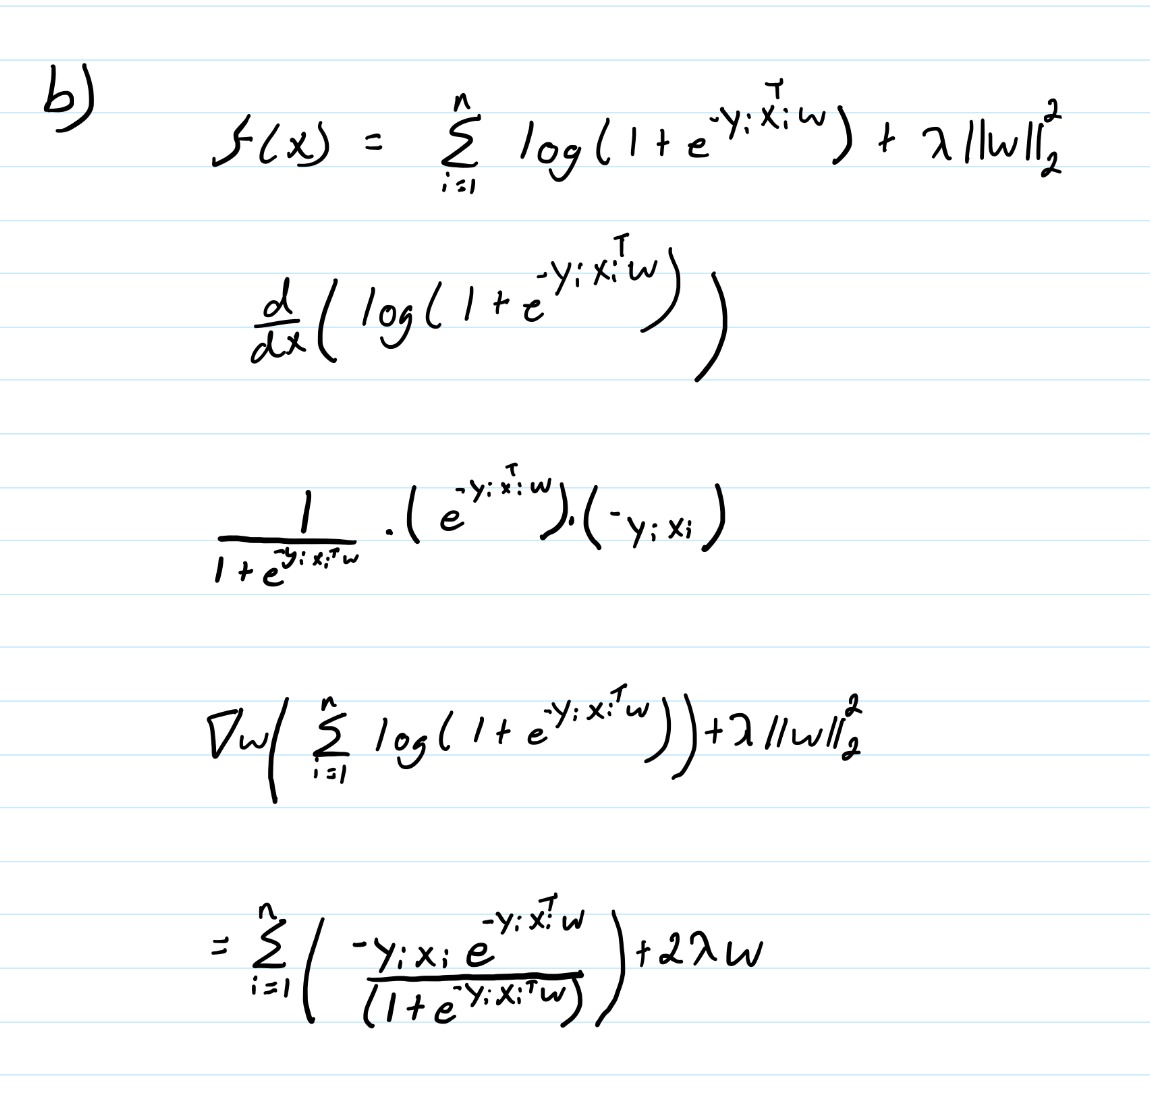 b)
f(x) = \sum_{i=1}^{n} log(1 + e^{-y_i x_i^T w}) + λ||w||_2^2
\frac{d}{dx}( log(1 + e^{-y_i x_i^T w}) )
\frac{1}{1 + e^{-y_i x_i^T w}} · (e^{-y_i x_i^T w}) · (-y_i x_i)
∇w( \sum_{i=1}^{n} log(1 + e^{-y_i x_i^T w}) ) + λ||w||_2^2
= \sum_{i=1}^{n} ( \frac{-y_i x_i e^{-y_i x_i^T w}}{(1 + e^{-y_i x_i^T w})} ) + 2λw